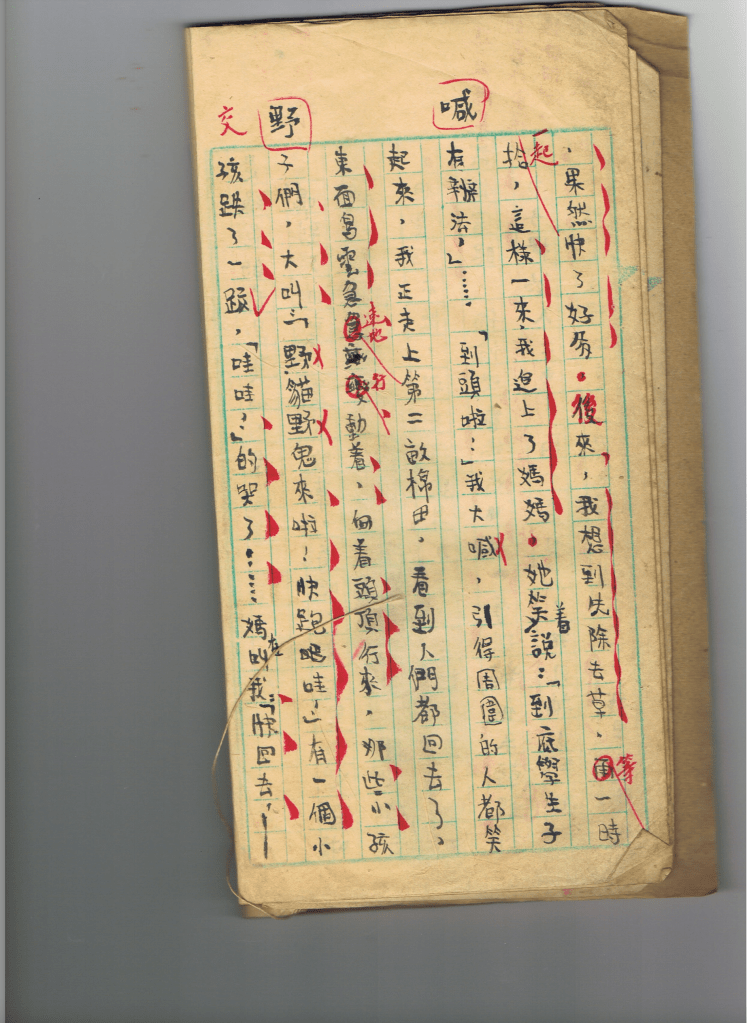 喊
野
交
，果然快了好多。後來，我想到先除去草，等一時
拾，這樣一來，我追上了媽媽。她笑着說：「到底學生子
一起
有辦法，」……「到頭啦！」我大喊，引得周圍的人都笑
起來，我正走上第二畝棉田，看到人們都回去了。
東面烏雲急速地行動着，向着頭頂行來，那些小孩
子們，大叫：「野貓野鬼來啦！快跑吧哇！」有一個小
孩跌了一跤，「哇哇！」的哭了……媽在叫我「快回去，——